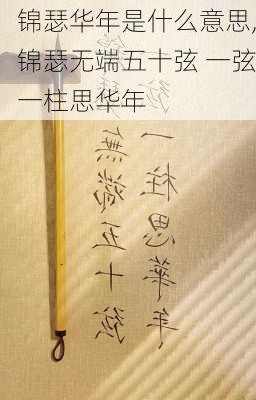 锦瑟华年是什么意思,
锦瑟无端五十弦 一弦
一柱思华年
無端五十絃
一柱思華年